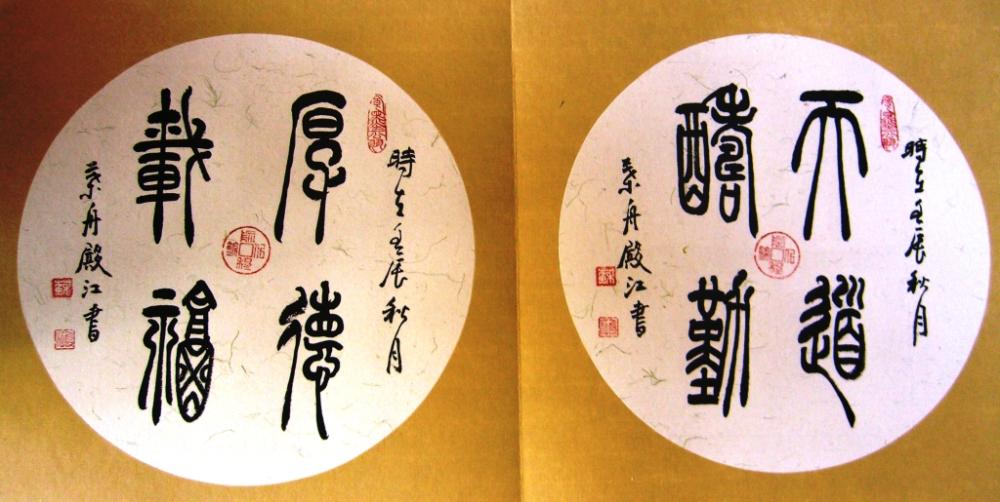 時在壬辰秋月
天道
酬勤
舟殿江書
時在壬辰秋月
厚德
載福
舟殿江書